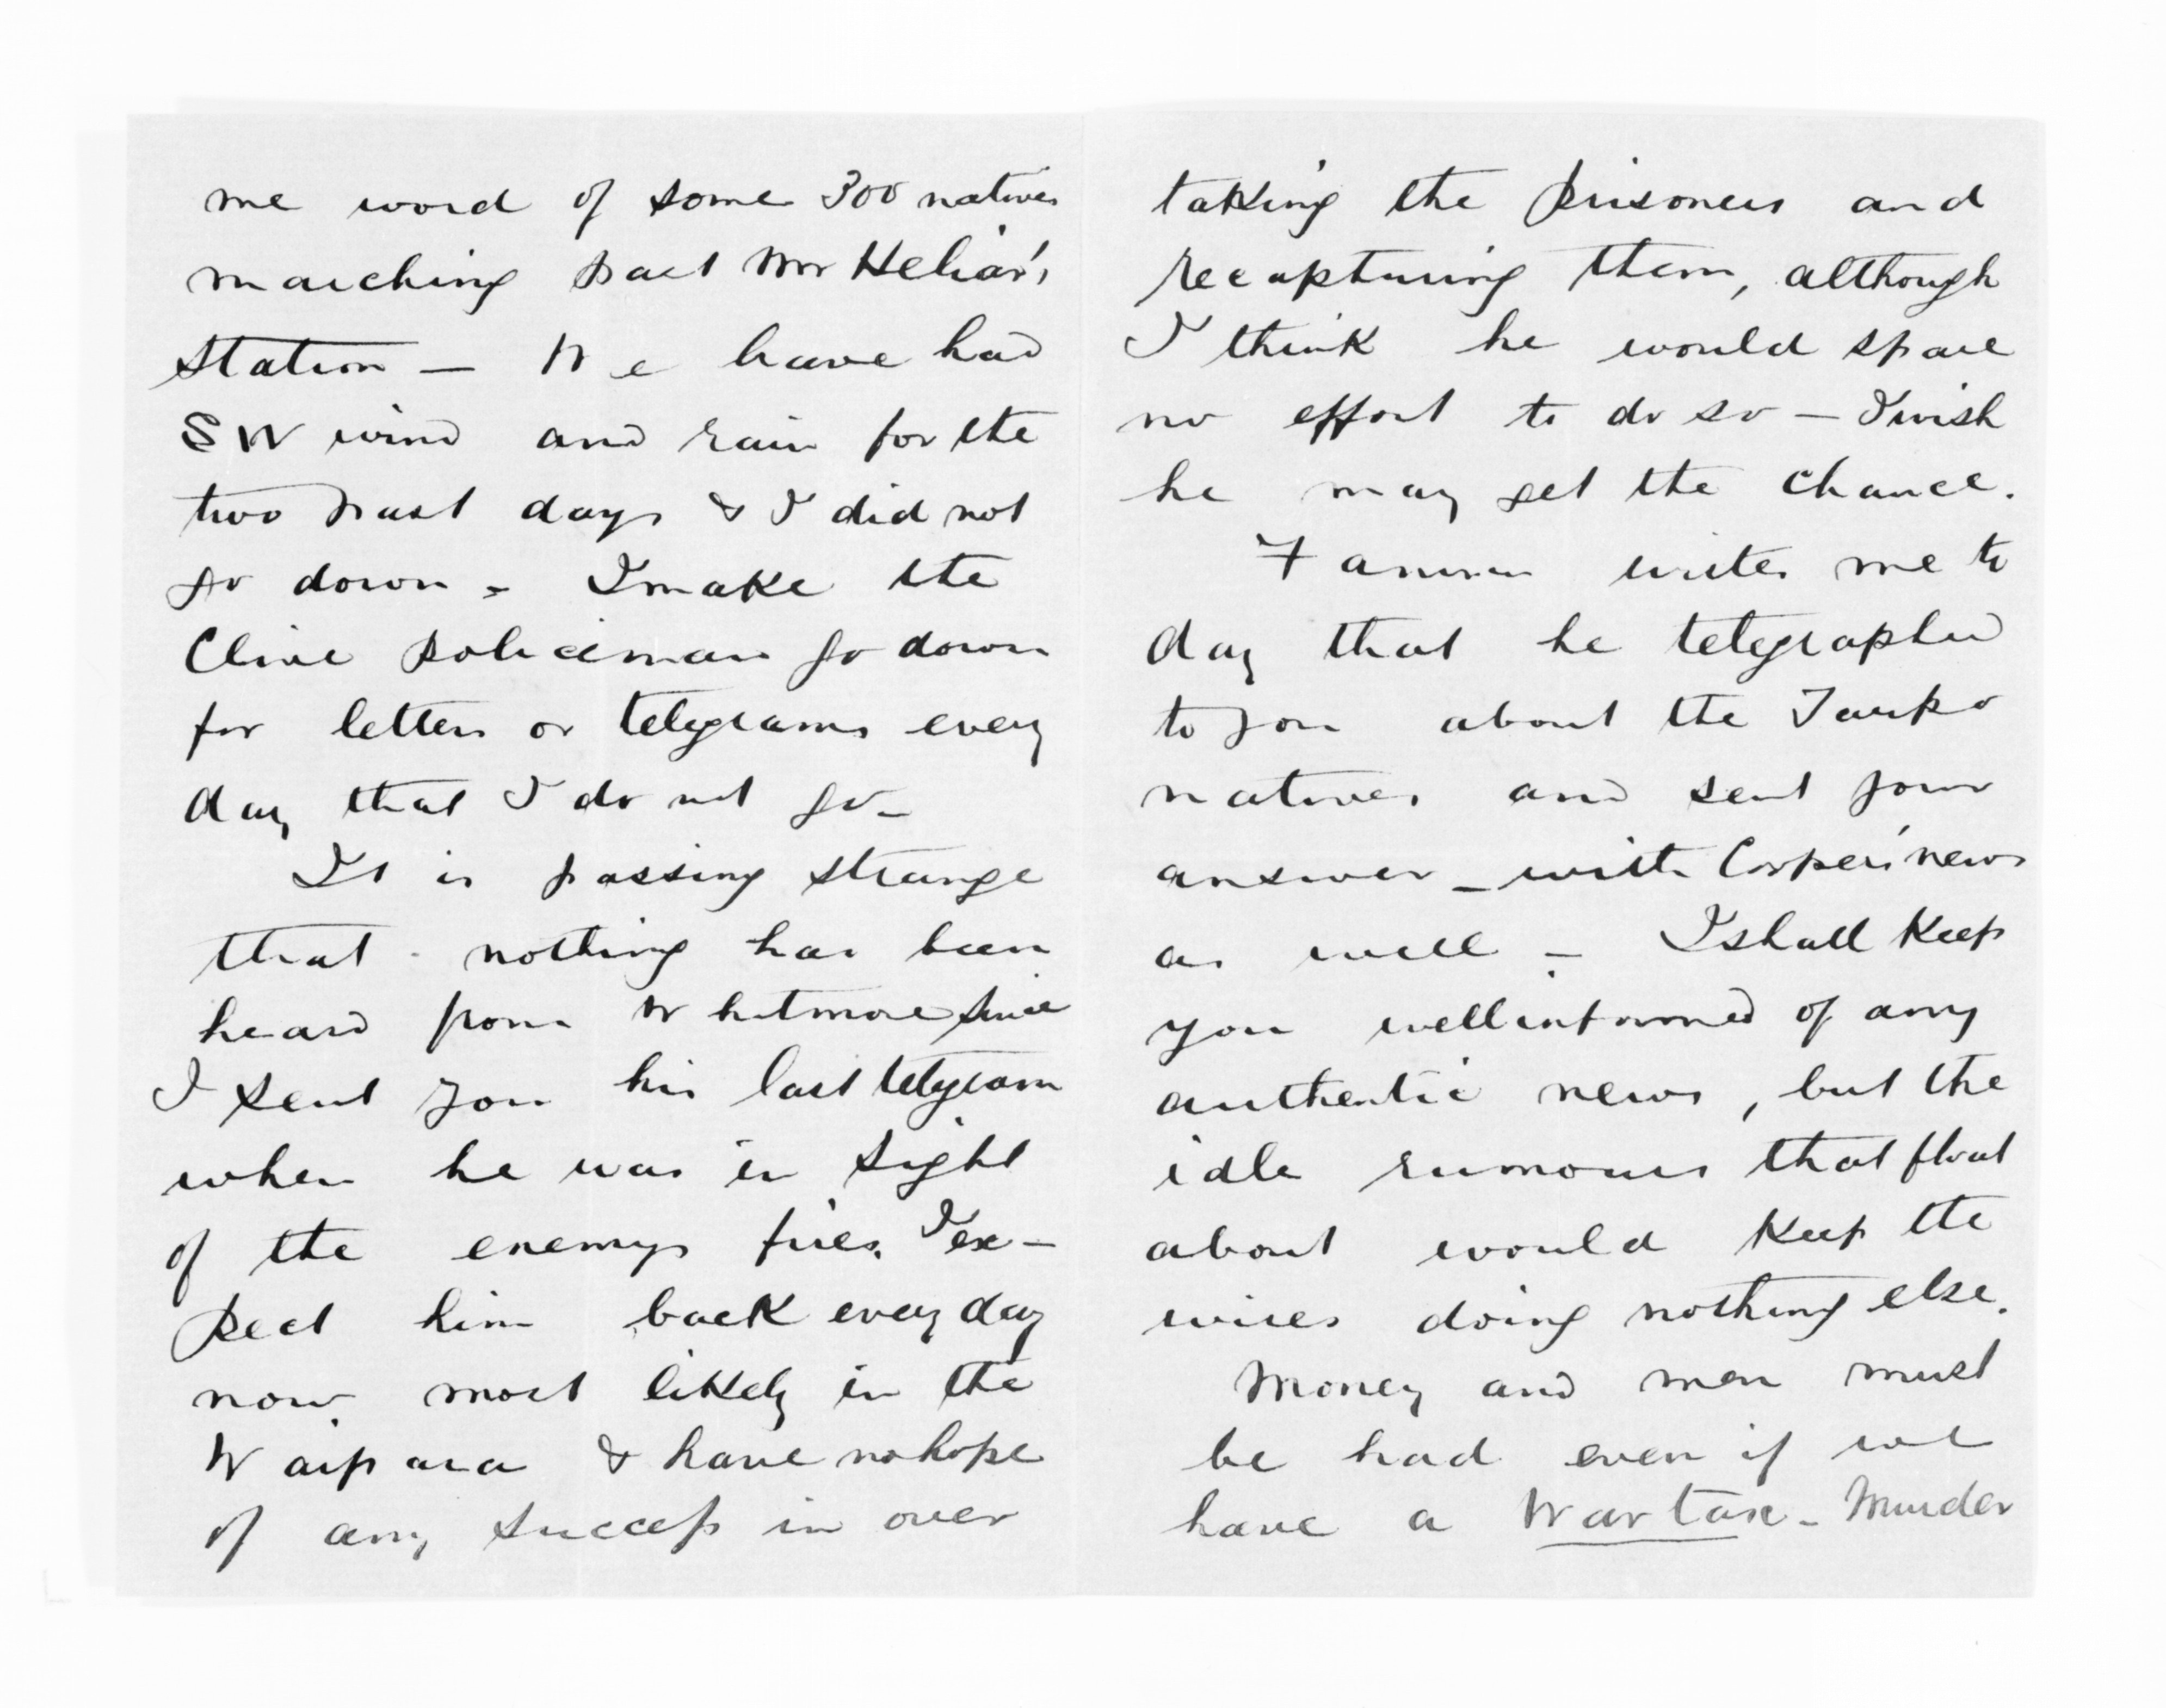 me word of some 300 natives
marching past Mr Heliar's
station — We have had
SW wind and rain for the
two past days & I did not
go down - I make the
Clive policeman go down
for letters or telegrams every
day that I do not go -
It is passing strange
that nothing has been
heard from Whitmore since
I sent you his last telegram
when he was in sight
of the enemys fires. I ex-
pect him back every day
now most likely in the
Waipara & have no hope
of any success in over
taking the prisoners and
recapturing them, although
I think he would spare
no effort to do so — I wish
he may get the chance.
writes me to
day that he telegraphed
to you about the Taupo
natives and sent your
answer - with Cooper's news
as well - I shall keep
you well informed of any
authentic news, but the
idle rumours that float
about would keep the
wires doing nothing else.
Money and men must
be had even if we
have a War tax - Murder